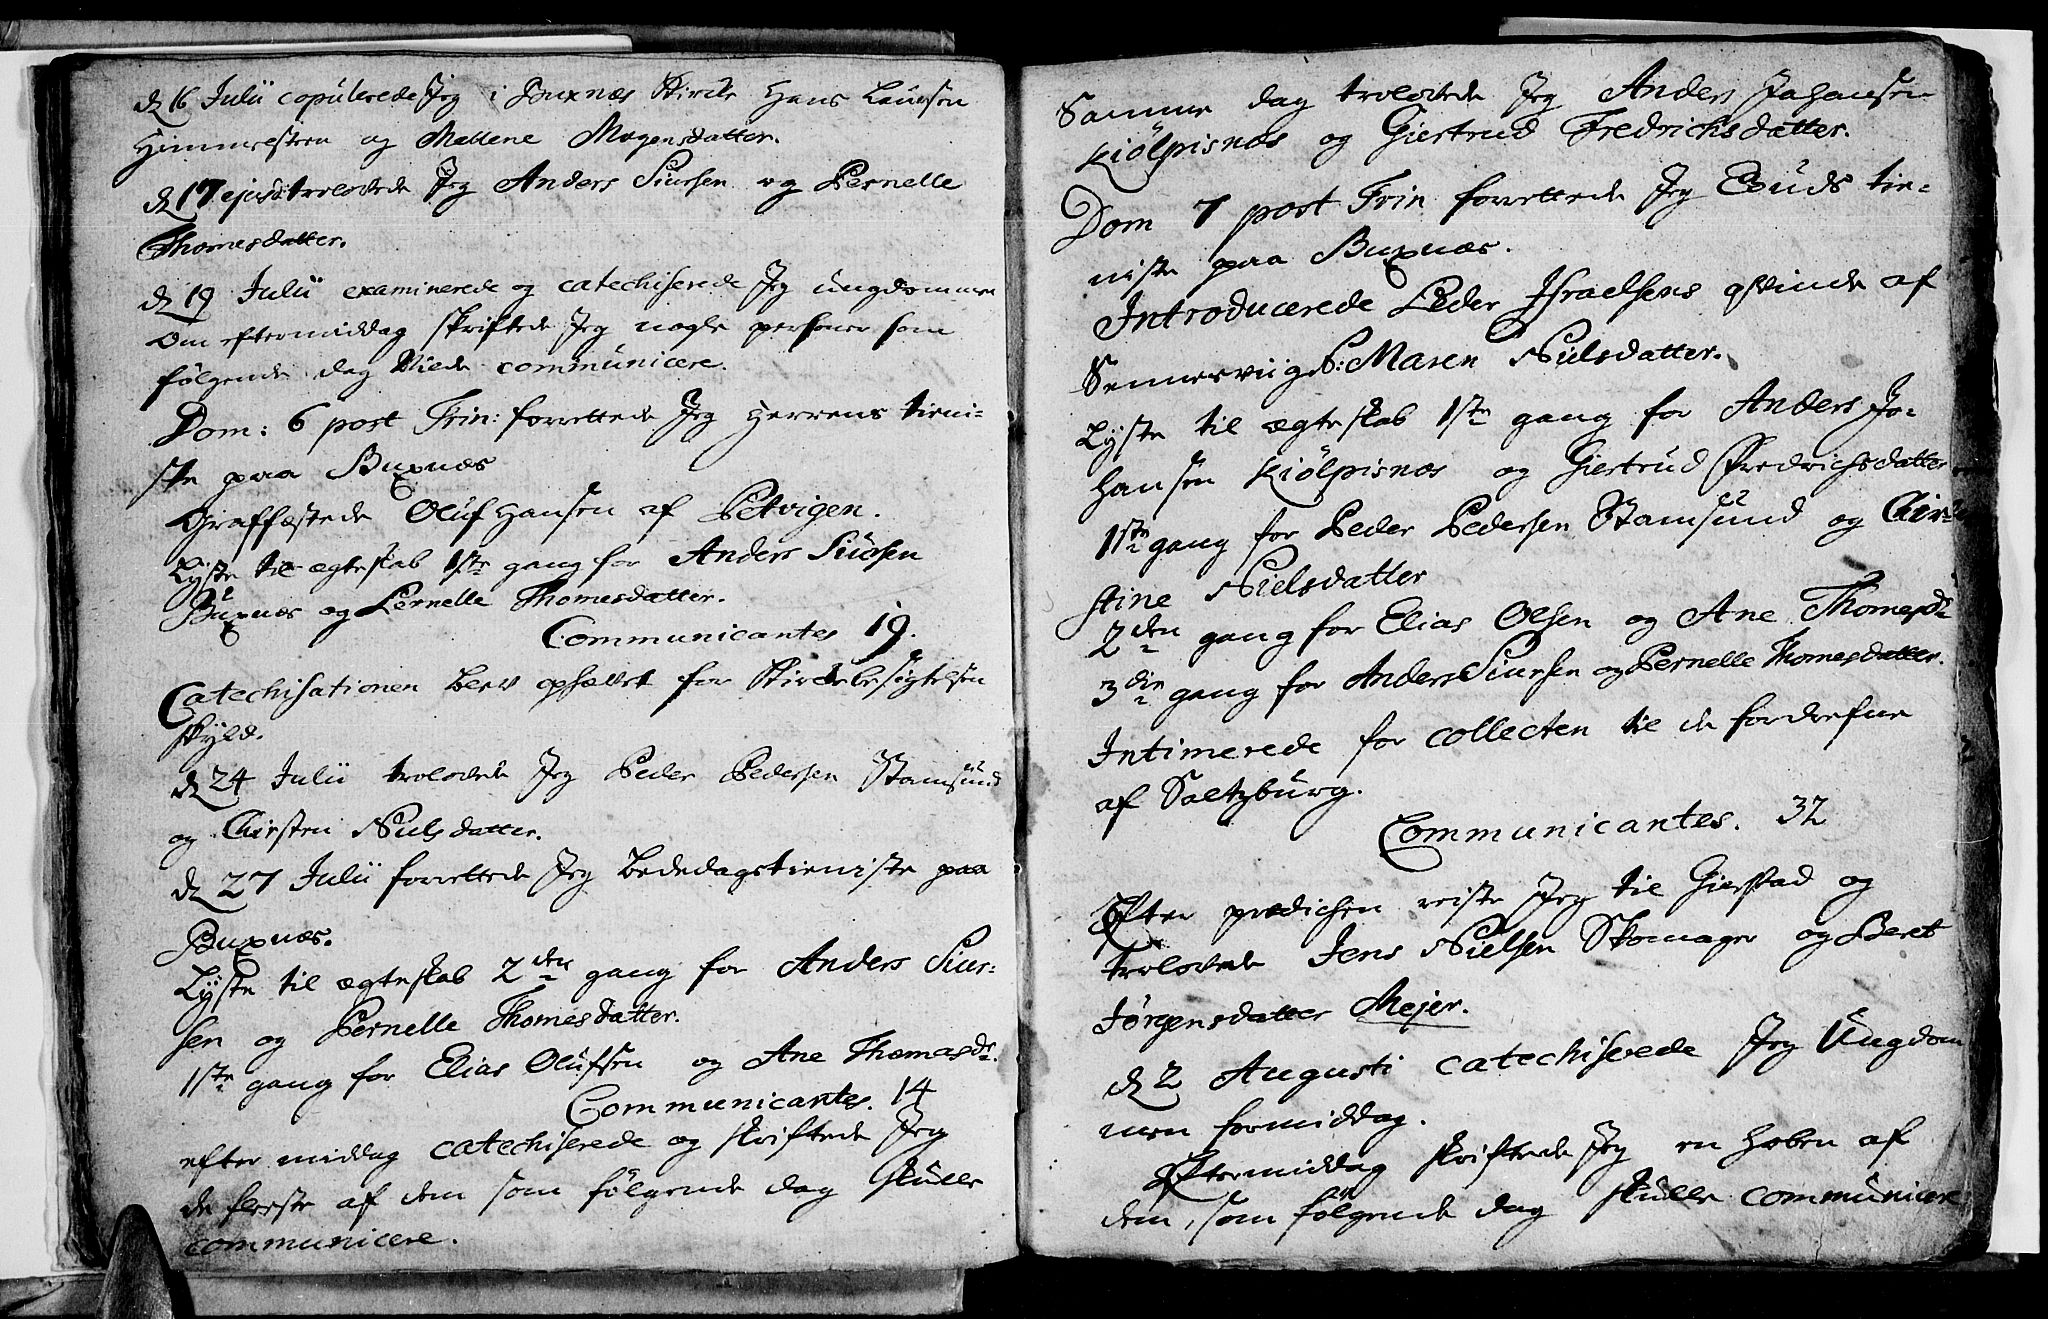 d 16 Julii copulerede Jeg i Buxnæs Kircke Hans Laursen
Himmersteen og Mallene Mogensdatter.
d 17 ejusd troloved​e Jeg Anders Siursen og Pernelle
Thomesdatter.
d 19 Julii examinerede og catechiserede Jeg ungdommen
Om eftermiddag skriftede Jeg nogle personer som
følgende dag vilde communicere.
Dom: 6 post Trin: forrettede Jeg Herrens tieni-
ste paa Buxnæs
Graffæstede Oluf Hansen af Petvigen.
Lyste til ægteskab 1ste gang for Anders Siursen
Buxnæs og Pernelle Thomesdatter.
Communicantes 19.
Catechisationen blev opsættet for Kirckebesigtelsen
skyld.
d 24 Julii trolovede Jeg Peder Pedersen Stamsund
og Chirsten Nielsdatter.
d 27 Julii forrettede Jeg Bededagstieniste paa
Buxnæs.
Lyste til ægteskab 2den gang for Anders Siur-
sen og Pernelle Thomesdatter.
1ste gang for Elias Olufsen og Ane Thomasdr.
Communicantes. 14
efter middag catechiserede og skriftede Jeg
de fleeste af dem som følgende dag skulle
communicere.
Samme dag trolovede Jeg Anders Johansen
Kiölpisnæs og Giertrud Fredrichsdatter.
Dom 7 post Trin forrettede Jeg Guds tie-
niste paa Buxnæs.
Introducerede Peder Israelsens qvinde af
Sennesviig N: Maren Nielsdatter.
Lyste til ægteskab 1ste gang for Anders Jo-
hansen Kiölpisnæs og Giertrud Fredrichsdatter
1ste gang for Peder Pedersen Stamsund og Chir-
stine Nielsdatter
2den gang for Elias Olsen og Ane Thomesdr
3die gang for Anders Siursen og Pernelle Thomesdatter.
Intimerede for collecten til de fordrefne
af Saltzburg.
Communicantes. 32
Efter prædichen reiste Jeg til Gierstad og
trolovede Jens Nielsen Skomager og Beret
Jørgensdatter Mejer.
d 2 Augusti catechiserede Jeg Ungdom
men formiddag.
Eftermiddag skriftede Jeg en hoben af
dem, som følgende dag skulle communicere